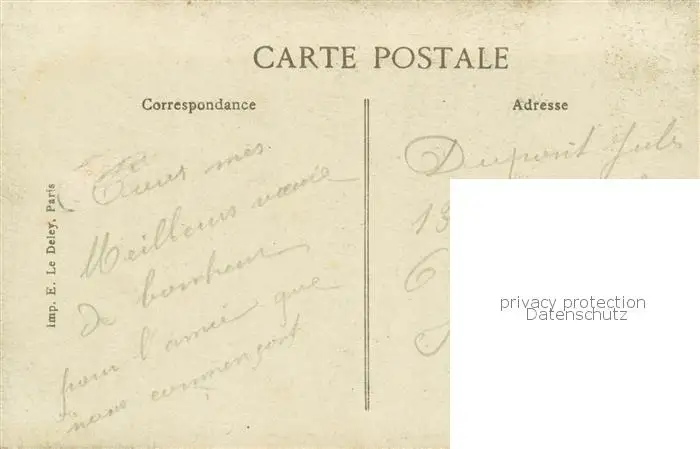 CARTE POSTALE
Correspondance
Adresse
Tous mes
Meilleurs vœux
de bonheur
pour l'année que
nous commençont
Dupont Jules
13
imp. E. Le Deley, Paris
privacy protection
Datenschutz